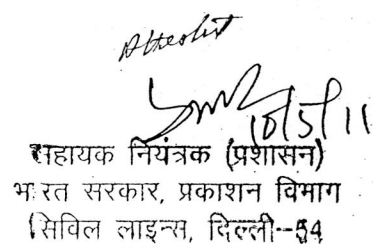 Attested
10/5/11
सहायक नियंत्रक (प्रशासन)
भारत सरकार, प्रकाशन विभाग
सिविल लाइन्स, दिल्ली--54